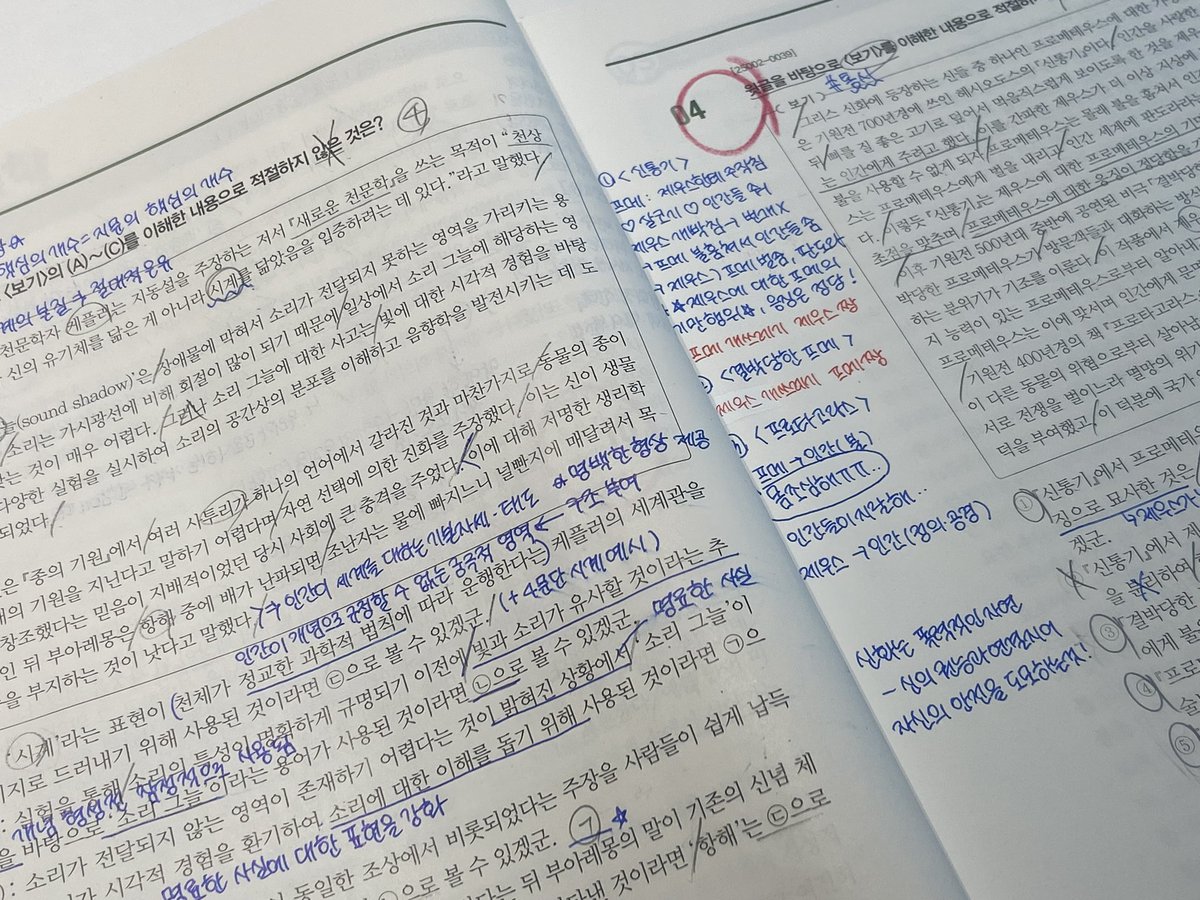 핵심의 개수 = 지문의 핵심의 개수
<보기>의 (A)~(C)를 이해한 내용으로 적절하지 않은 것은? ④
세계의 본질 추 절대적은유
천문학자 케플러는 지동설을 주장하는 저서 『새로운 천문학』을 쓰는 목적이 “천상
신의 유기체를 닮은 게 아니라 시계를 닮았음을 입증하려는 데 있다.”라고 말했다.
(sound shadow)’은 장애물에 막혀서 소리가 전달되지 못하는 영역을 가리키는 용
소리는 가시광선에 비해 회절이 많이 되기 때문에 일상에서 소리 그늘에 해당하는 영
는 것이 매우 어렵다. 그러나 소리 그늘에 대한 사고는 빛에 대한 시각적 경험을 바탕
다양한 실험을 실시하여 소리의 공간상의 분포를 이해하고 음향학을 발전시키는 데 도
되었다.
은 『종의 기원』에서 여러 사투리가 하나의 언어에서 갈라진 것과 마찬가지로 동물의 종이
개의 기원을 지닌다고 말하기 어렵다며 자연 선택에 의한 진화를 주장했다. 이는 신이 생물
창조했다는 믿음이 지배적이었던 당시 사회에 큰 충격을 주었다. 이에 대해 저명한 생리학
인 뒤 부아레몽은 항해 중에 배가 난파되면 조난자는 물에 빠지느니 널빤지에 매달려서 목
을 부지하는 것이 낫다고 말했다.
→ 인간이 세계를 대하는 기본자세·태도 or 명백한 형상 제공
인간이 개념으로 규정할 수 없는 궁극적 영역 ← 구조 부여
‘시계’라는 표현이 (천체가 정교한 과학적 법칙에 따라 운행한다는) 케플러의 세계관을
지로 드러내기 위해 사용된 것이라면 ㉢으로 볼 수 있겠군. (+4문단 시계 예시)
: 실험을 통해 소리의 특성이 명확하게 규명되기 이전에 빛과 소리가 유사할 것이라는 추
개념 형성전 잠정적으로 사용됨
을 바탕으로 ‘소리 그늘’이라는 용어가 사용된 것이라면 ㉡으로 볼 수 있겠군. 명료한 사실
: 소리가 전달되지 않는 영역이 존재하기 어렵다는 것이 밝혀진 상황에서 ‘소리 그늘’이
시각적 경험을 환기하여 소리에 대한 이해를 돕기 위해 사용된 것이라면 ㉠으
로 볼 수 있겠군. ㄱ ☆
명료한 사실에 대한 표현을 강화
동일한 조상에서 비롯되었다는 주장을 사람들이 쉽게 납득
으로 볼 수 있겠군.
뒤 부아레몽의 말이 기존의 신념 체
것이라면 ‘항해’는 ㉢으로
[25002-0039]
04 윗글을 바탕으로 <보기>를 이해한 내용으로 적절하
<보기>
그리스 신화에 등장하는 신들 중 하나인 프로메테우스에 대한
은 기원전 700년경에 쓰인 헤시오도스의 『신통기』이다. 인간을 사랑한
뒤 뼈를 질 좋은 고기로 덮어서 먹음직스럽게 보이도록 한 것을 제우
는 인간에게 주려고 했다. 이를 간파한 제우스가 더 이상 지상에
불을 사용할 수 없게 되자 프로메테우스는 몰래 불을 훔쳐서 인
스는 프로메테우스에게 벌을 내리고 인간 세계에 판도라라
다. 이렇듯 『신통기』는 제우스에 대한 프로메테우스의 기
초점을 맞추며 프로메테우스에 대한 응징이 정당함을
이후 기원전 500년대 중반에 공연된 비극 『결박당
박당한 프로메테우스가 방문객들과 대화하는
하는 분위기가 기조를 이룬다. 이 작품에서
지 능력이 있는 프로메테우스로부터 알아내
프로메테우스는 이에 맞서며 인간에게 문
기원전 400년경의 책 『프로타고라스
이 다른 동물의 위협으로부터 살아남
서로 전쟁을 벌이느라 멸망의 위기
덕을 부여했고, 이 덕분에 국가
① <신통기>
프메 : 제우스한테 주작침
♡ 살코기 ♡ 인간들 줘
제우스 개빡침 → 번개X
→ 프메 불훔쳐서 인간들 줌
→ 제우스가 프메 벌줌, 판도라
★제우스에 대한 프메의
기만행위★, 응징은 정당!
프메 개쓰레기 제우스 짱
<결박당한 프메>
제우스 개쓰레기 프메짱
<프로타고라스>
프메 → 인간 (불)
몸조심해ㅠㅠ...
인간들이 지랄해...
제우스 → 인간 (정의·공경)
신화는 폭력적인 자연
- 신의 권능과 연결시켜
자신의 안전을 도모하는것!
① 『신통기』에서 프로메
징으로 묘사한 것은
겠군.
『신통기』에서 제
을 분리하여
③ 『결박당한
에게 불
④ 『프로
술
⑤